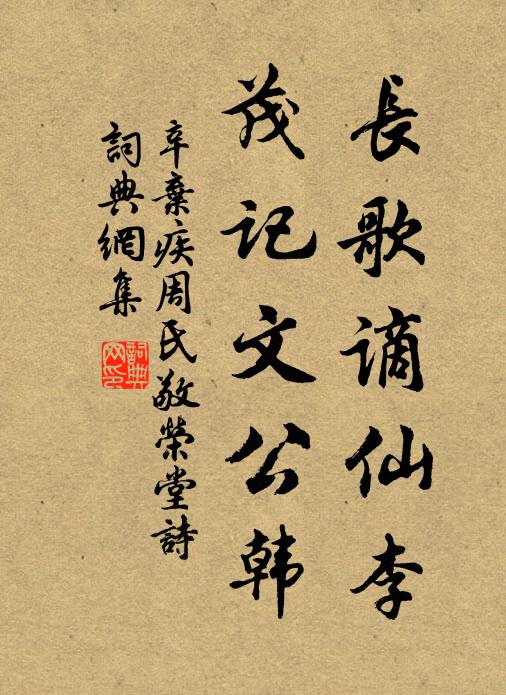 長歌謫仙李
茂記文公韩
辛棄疾周氏敬榮堂詩
詞典網集
詞典网印